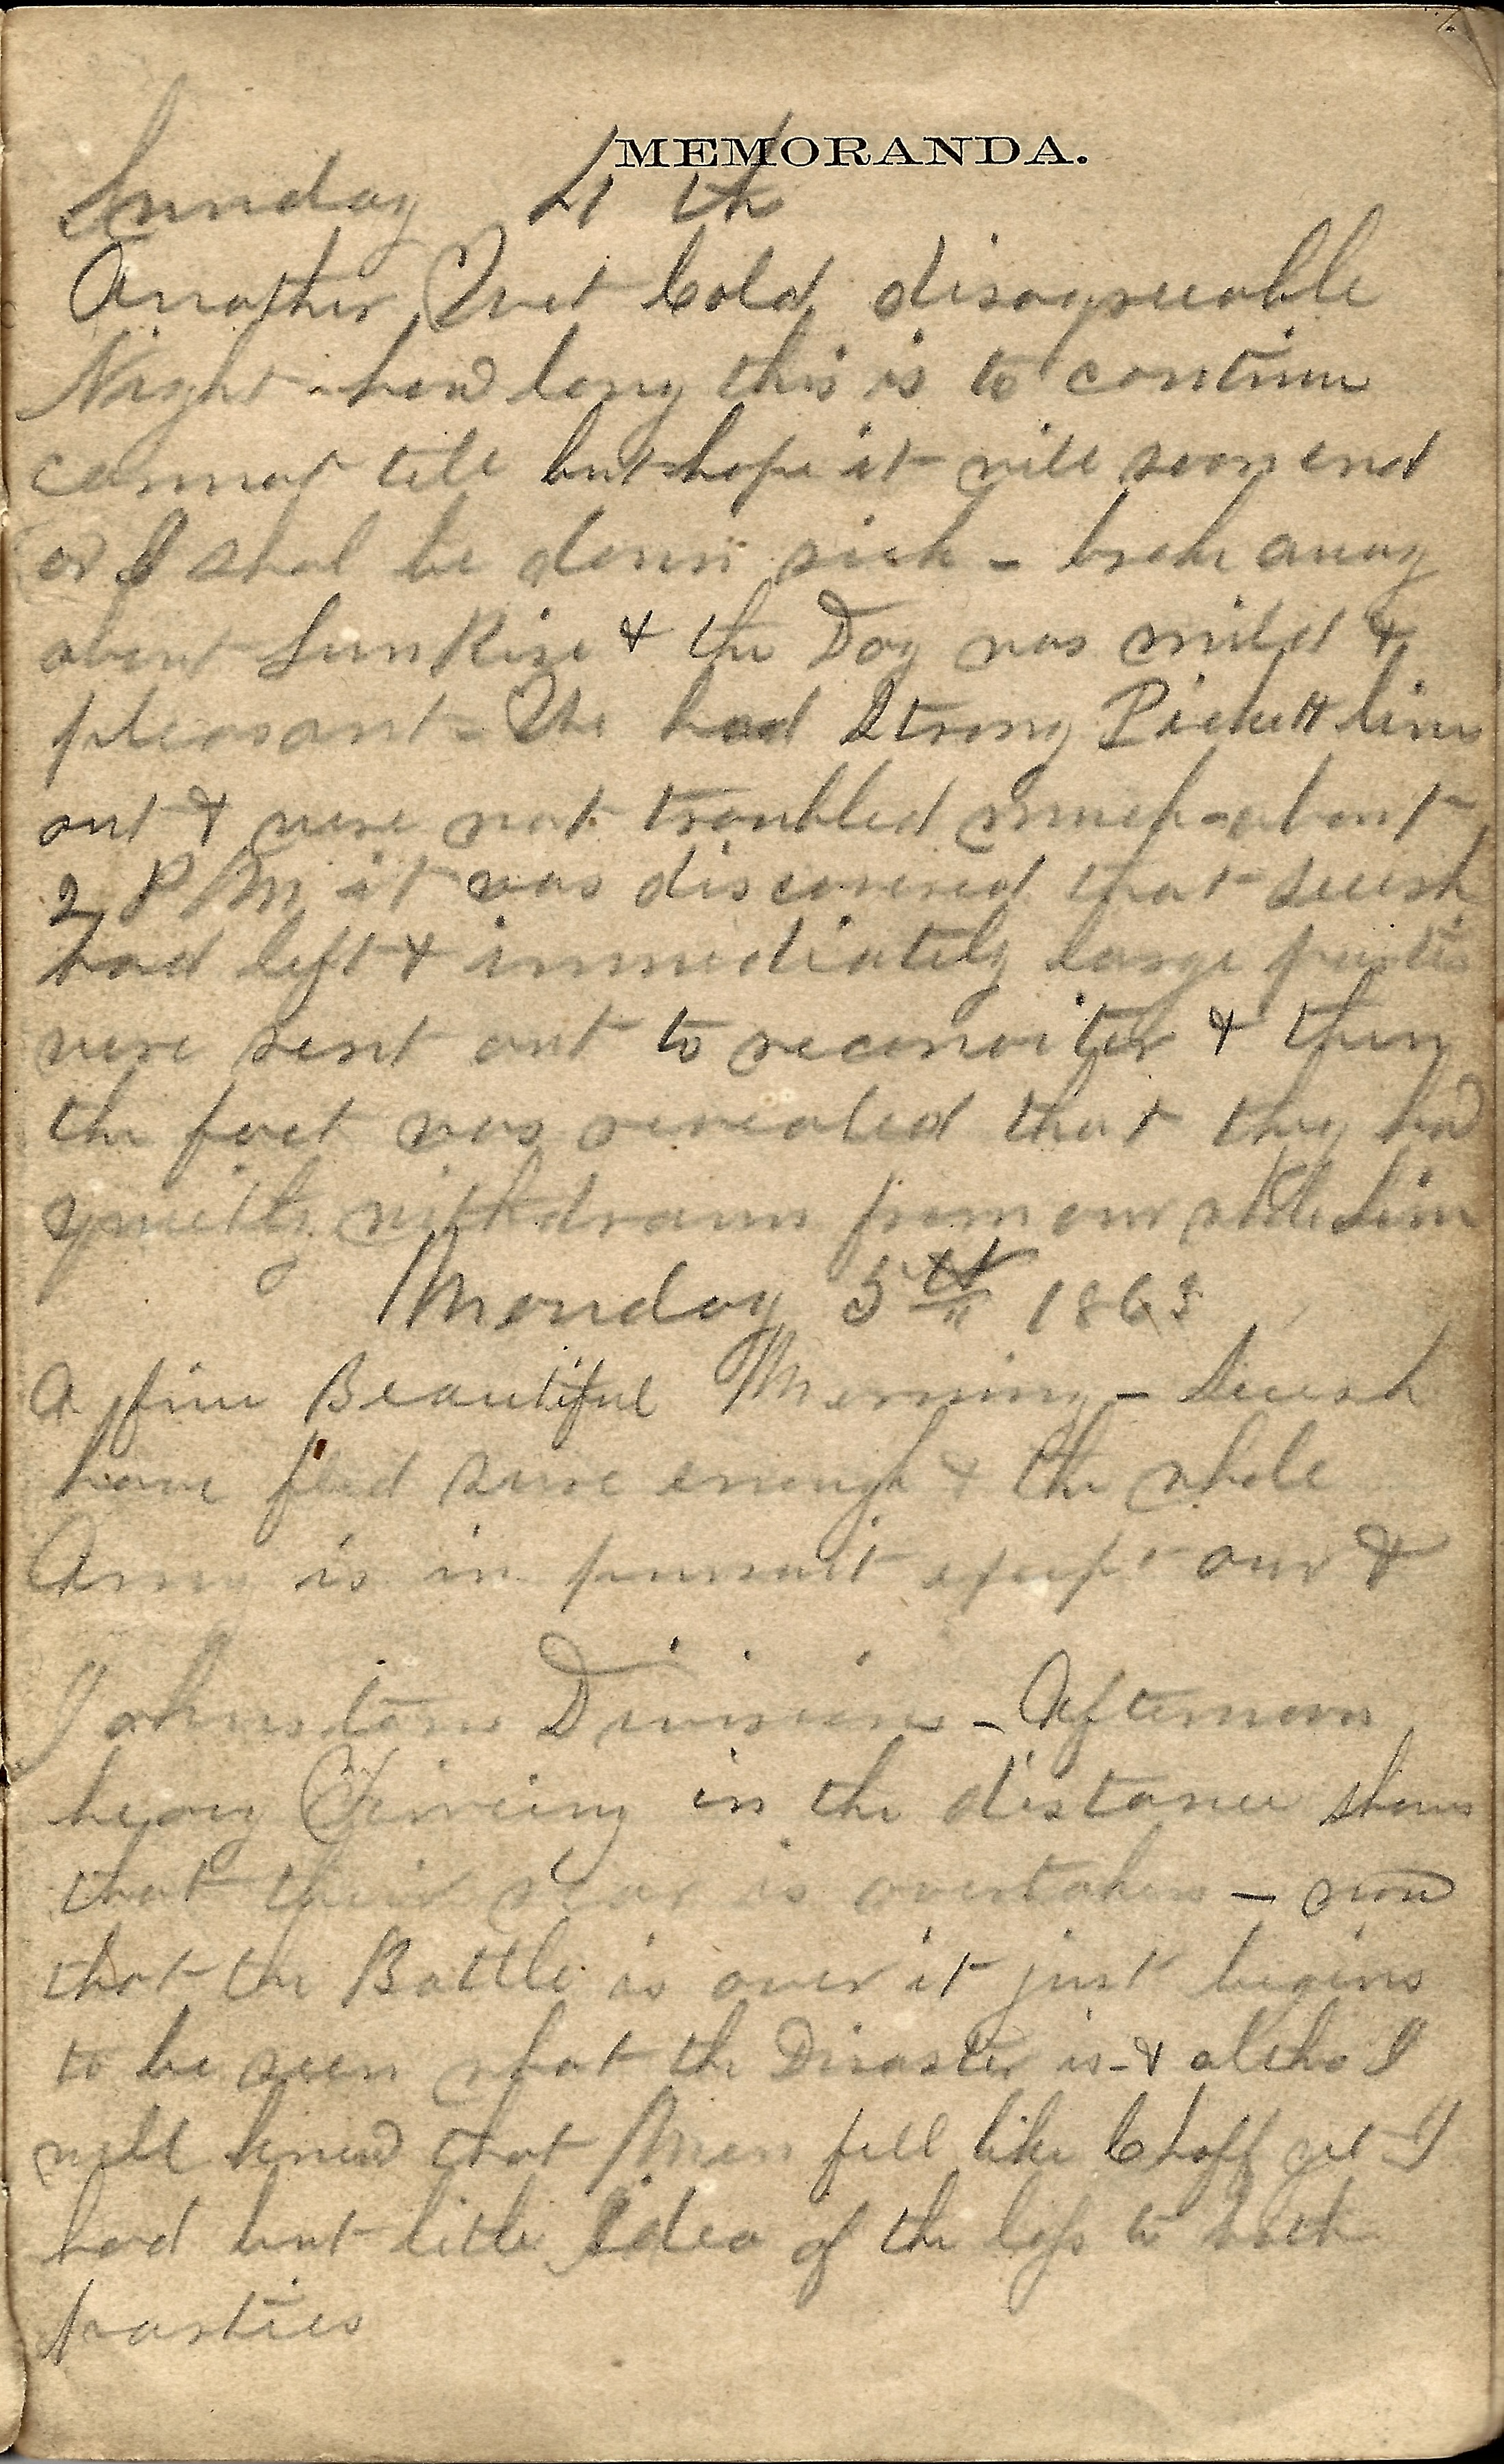 MEMORANDA.
Sunday 4th
Another Wet Cold disagreeable
Night - how long this is to continue
cannot tell but hope it will soon end
or I shal be down sick - broke away
about Sun Rise & the Day was mild &
pleasant - We had Strong Pickett line
out & were not troubled much - about
2 PM it was discovered that Secesh
had left & immediately large parties
were sent out to reconoiter & then
the fact was revealed that they had
quietly withdrawn from our whole line
Monday 5th 1863
A fine Beautiful Morning - Secesh
have fled sure enough & the whole
Army is in pursuit exept our &
Johnstons Divisions - Afternoon
heavy Firreing in the distance shows
that their rear is overtaken - now
that the Battle is over it just begins
to be seen what the Disaster is - & altho I
well knew that Men fell like Chaff yet I
had but litle Idea of the loss to both
parties